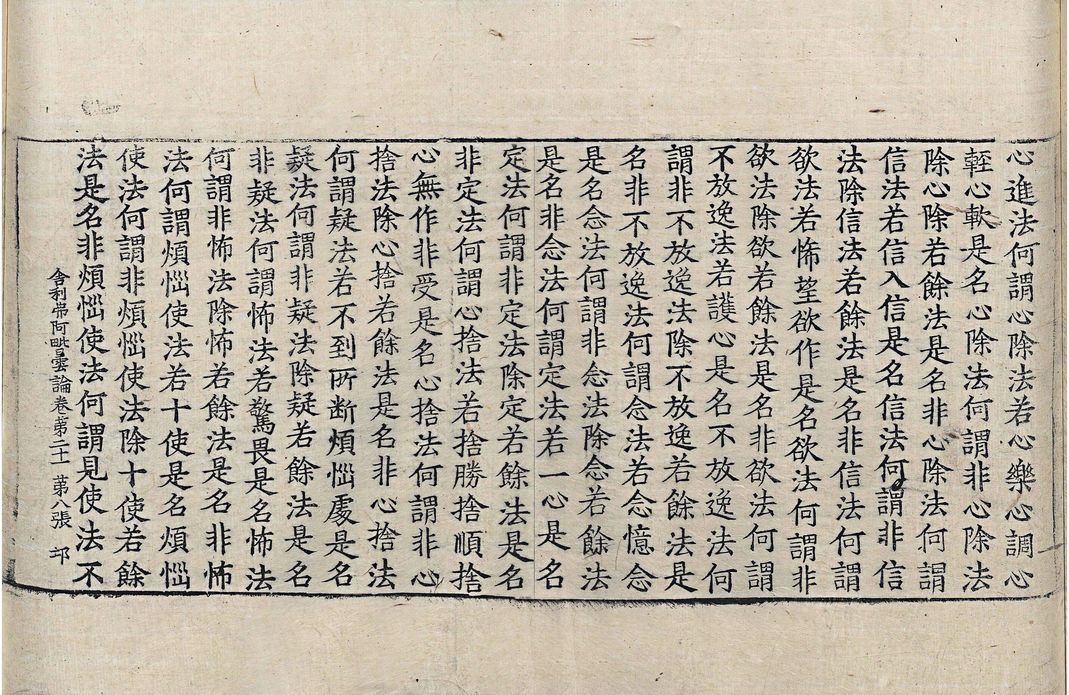 心進法何謂心除法若心樂心調心
輕心軟是名心除法何謂非心除法
除心除若餘法是名非心除法何謂
信法若信入信是名信法何謂非信
法除信法若餘法是名非信法何謂
欲法若悕望欲作是名欲法何謂非
欲法除欲若餘法是名非欲法何謂
不放逸法若護心是名不放逸法何
謂非不放逸法除不放逸若餘法是
名非不放逸法何謂念法若念憶念
是名念法何謂非念法除念若餘法
是名非念法何謂定法若一心是名
定法何謂非定法除定若餘法是名
非定法何謂心捨法若捨勝捨順捨
心無作非受是名心捨法何謂非心
捨法除心捨若餘法是名非心捨法
何謂疑法若不到所断煩惱處是名
疑法何謂非疑法除疑若餘法是名
非疑法何謂怖法若驚畏是名怖法
何謂非怖法除怖若餘法是名非怖
法何謂煩惱使法若十使是名煩惱
使法何謂非煩惱使法除十使若餘
法是名非煩惱使法何謂見使法不
舍利弗阿毗曇論卷第二十一 第八張 邙